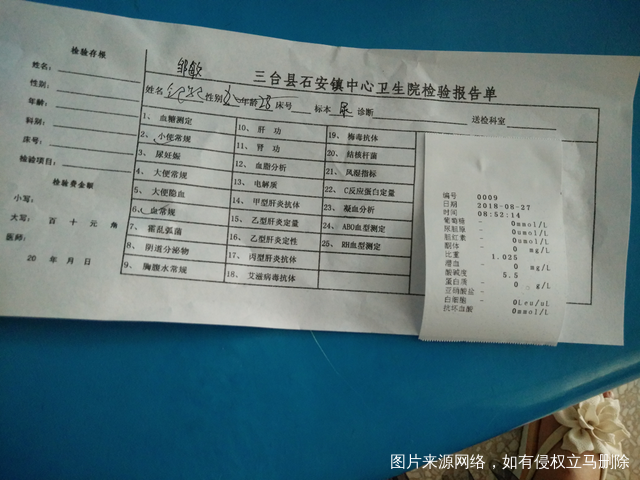 检验存根
姓名：
性别：
年龄：
科别：
床号：
检验项目：
检验费金额
小写：
大写： 百 十 元 角
医师：
20 年 月 日
邹敏
三台县石安镇中心卫生院检验报告单
姓名 性别 女 年龄 床号 标本 尿 诊断 送检科室
1、 血糖测定
2、 小便常规
3、 尿妊娠
4、 大便常规
5、 大便隐血
6、 血常规
7、 霍乱弧菌
8、 阴道分泌物
9、 胸腹水常规
10、 肝 功
11、 肾 功
12、 血脂分析
13、 电解质
14、 甲型肝炎抗体
15、 乙型肝炎定量
16、 乙型肝炎定性
17、 丙型肝炎抗体
18、 艾滋病毒抗体
19、 梅毒抗体
20、 结核杆菌
21、 风湿指标
22、 C反应蛋白定量
23、 凝血分析
24、 ABO血型测定
25、 RH血型测定
编号 0009
日期 2018-08-27
时间 08:52:14
葡萄糖 - 0mmol/L
尿胆原 - 0umol/L
胆红素 - 0umol/L
酮体 - 0 mg/L
比重 1.025
潜血 - 0 mg/L
酸碱度 5.5
蛋白质 - 0 g/L
亚硝酸盐 -
白细胞 - 0Leu/uL
抗坏血酸 0mmol/L
图片来源网络，如有侵权立马删除